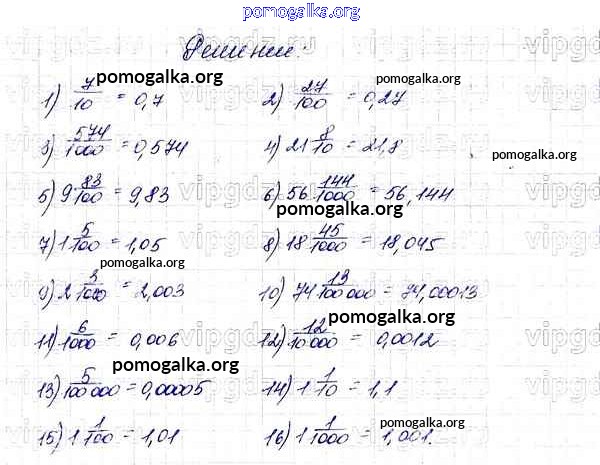 pomogalka.org
Решение:
pomogalka.org pomogalka.org
1) 7/10 = 0,7 2) 27/100 = 0,27
3) 574/1000 = 0,574 4) 21 8/10 = 21,8
pomogalka.org
5) 9 83/100 = 9,83 6) 56 144/1000 = 56,144
pomogalka.org
7) 1 5/100 = 1,05 8) 18 45/1000 = 18,045
pomogalka.org
9) 2 3/1000 = 2,003 10) 74 13/100 000 = 74,00013
pomogalka.org
11) 6/1000 = 0,006 12) 12/10 000 = 0,0012
pomogalka.org
13) 5/100 000 = 0,00005 14) 1 1/10 = 1,1
pomogalka.org
15) 1 1/100 = 1,01 16) 1 1/1000 = 1,001.